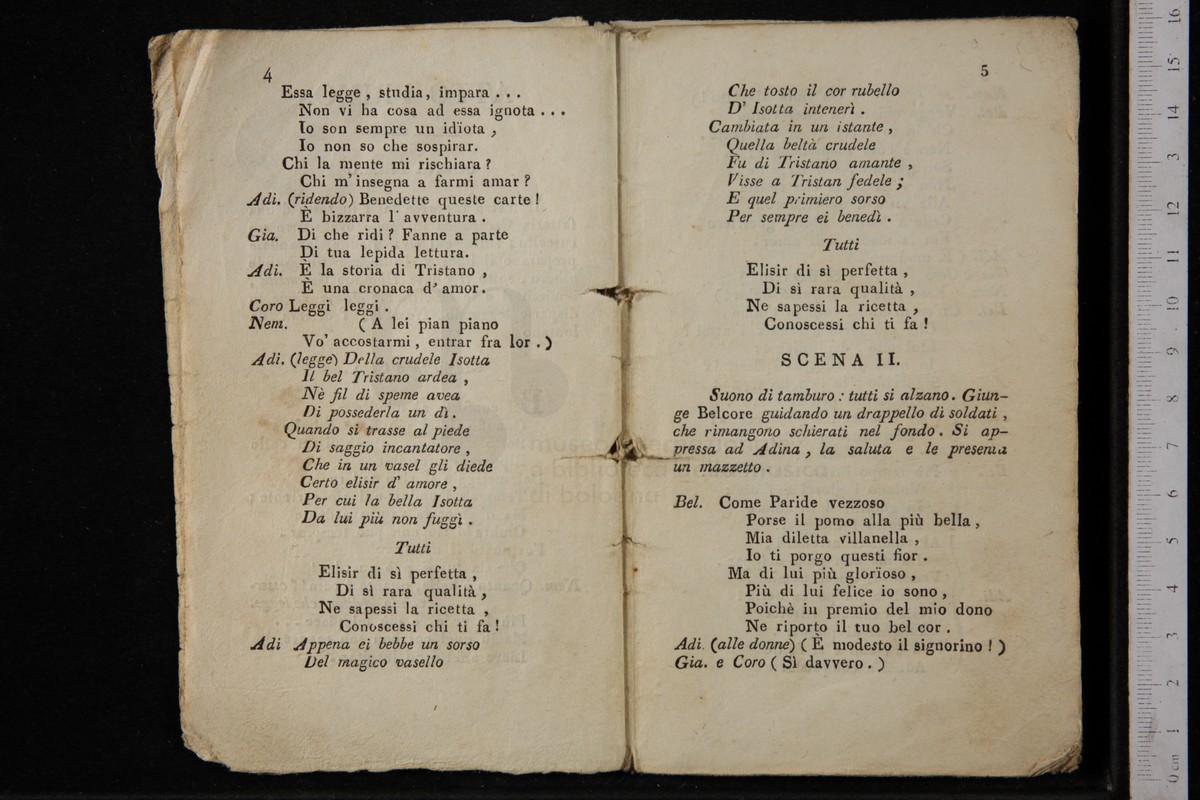 4
Essa legge , studia, impara . . .
Non vi ha cosa ad essa ignota . . .
Io son sempre un idïota ,
Io non so che sospirar.
Chi la mente mi rischiara ?
Chi m' insegna a farmi amar ?
Adi. (ridendo) Benedette queste carte !
È bizzarra l' avventura .
Gia. Di che ridi ? Fanne a parte
Di tua lepida lettura.
Adi. È la storia di Tristano ,
È una cronaca d' amor.
Coro Leggi leggi .
Nem. ( A lei pian piano
Vo' accostarmi , entrar fra lor . )
Adi. (legge) Della crudele Isotta
Il bel Tristano ardea ,
Nè fil di speme avea
Di possederla un dì .
Quando si trasse al piede
Di saggio incantatore ,
Che in un vasel gli diede
Certo elisir d' amore ,
Per cui la bella Isotta
Da lui più non fuggì .
Tutti
Elisir di sì perfetta ,
Di sì rara qualità ,
Ne sapessi la ricetta ,
Conoscessi chi ti fa !
Adi Appena ei bebbe un sorso
Del magico vasello
5
Che tosto il cor rubello
D' Isotta intenerì .
Cambiata in un istante ,
Quella beltà crudele
Fu di Tristano amante ,
Visse a Tristan fedele ;
E quel primiero sorso
Per sempre ei benedì .
Tutti
Elisir di sì perfetta ,
Di sì rara qualità ,
Ne sapessi la ricetta ,
Conoscessi chi ti fa !
SCENA II.
Suono di tamburo : tutti si alzano. Giun-
ge Belcore guidando un drappello di soldati ,
che rimangono schierati nel fondo . Si ap-
pressa ad Adina , la saluta e le presenta
un mazzetto .
Bel. Come Paride vezzoso
Porse il pomo alla più bella ,
Mia diletta villanella ,
Io ti porgo questi fior .
Ma di lui più glorïoso ,
Più di lui felice io sono ,
Poichè in premio del mio dono
Ne riporto il tuo bel cor .
Adi. (alle donne) ( È modesto il signorino ! )
Gia. e Coro ( Sì davvero . )
di bologna
0 cm 1 2 3 4 5 6 7 8 9 10 11 12 13 14 15 16